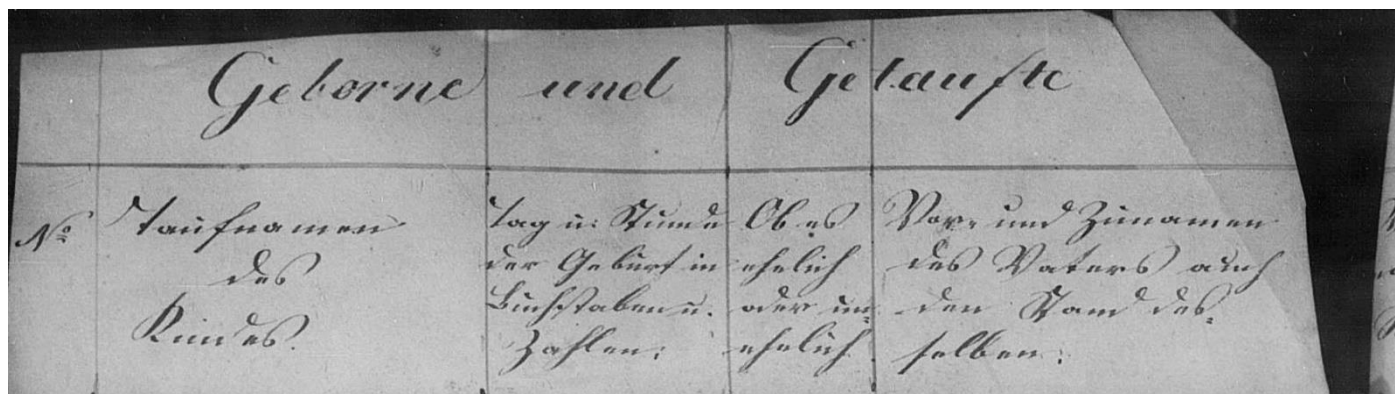 Geborne und Getaufte
No
Taufnamen
des
Kindes.
Tag u: Stunde
der Geburt in
Buchstaben u.
Zahlen:
Ob es
ehelich
oder un=
ehelich
Vor= und Zunamen
des Vaters auch
den Stand des=
selben: